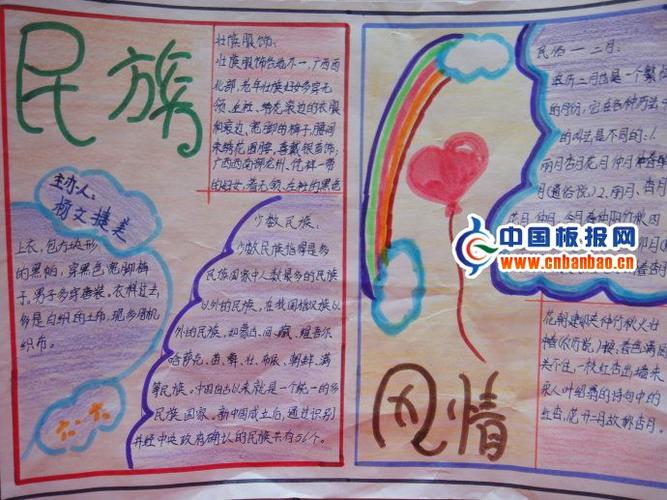 民族
壮族服饰:
壮族服饰各有不一,广西西
北部,老年壮族妇女多穿无
领、左衽、绣花滚边的衣服
和滚边、宽脚的裤子,腰间
束绣花围腰,喜戴银首饰;
广西西南部龙州、凭祥一带
的妇女,着无领、左衽的黑色
主办人:
杨文捷 美
上衣,包方块形
的黑帕,穿黑色宽脚裤
子,男子多穿唐装。衣料过去
多是自织的土布,现多用机
织布。
六.六
少数民族:
少数民族指得是多
民族国家中人数最多的民族
以外的民族,在我国指汉族以
外的民族,如蒙古、回、藏、维吾尔
哈萨克、苗、彝、壮、布依、朝鲜、满
等民族。中国自古以来就是一个统一的多
民族国家。新中国成立后,通过识别
并经中央政府确认的民族共有56个。
风情
民俗一二月:
农历二月也是一个繁
的月份,它在各种方法
的叫法是不同的:
月(通俗说)2、丽月、杏月
中国板报网
www.cnbanbao.cn
关不住,一枝红杏出墙来
采人叶绍翁的诗句中的
红杏,花开二月故称杏月。